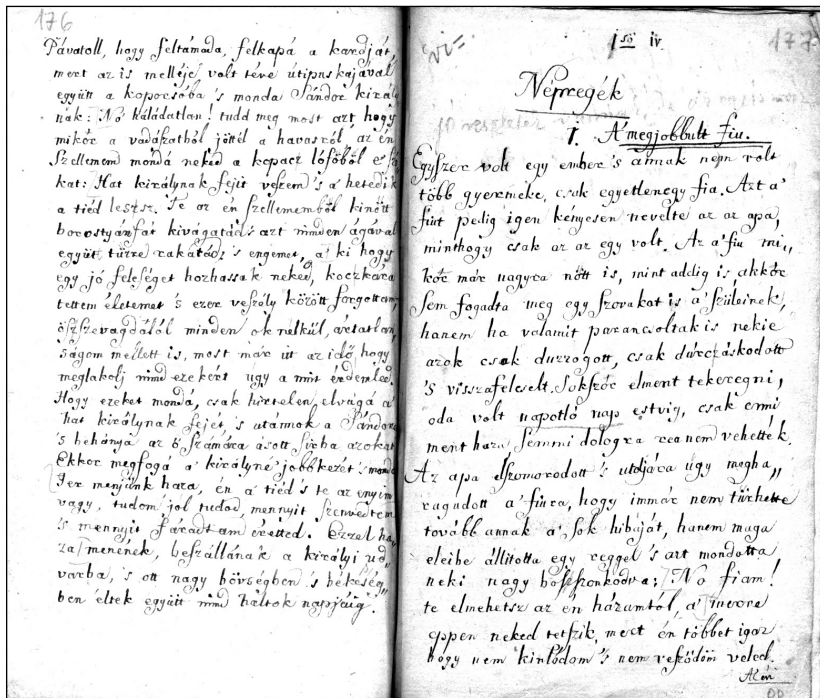 176
Pávatoll, hogy feltámada, felkapá a kardját,
mert az is melléje volt téve útipuskájával
együtt a koporsóba 's monda Sándor király
nak: Nó háládatlan! tudd meg most azt hogy
mikór a vadászatból jöttél a havasról, az én
Szellemem mondá neked a kopacz lófőből e szó
kat: Hat királynak fejit vészem 's a hetedik
a tiéd lessz. Te az én szellememből kinőtt
borostyánfát kivágatád 's azt minden ágával
együtt tűzre rakatád; 's engemet, a ki hogy
egy jó feleséget hozhassak neked, koczkára
tettem életemet 's ezer veszély között forgottam,
öszszevagdalál minden ok nélkül, ártatlan
ságom mellett is, most már itt az idő, hogy
meglakolj mind ezekért úgy a mint érdemled.
Hogy ezeket mondá, csak hirtelen elvágá a
hat királynak fejét, 's utánnok a Sándorét
's behányá az ő számára ásott sirba azokat
Ekkor megfogá a királyné jobbkezét 's monda
Jer menjünk haza, én a tiéd 's te az enyim
vagy, tudom jól tudod, mennyit szenvedtem
's mennyit fáradtam éretted. Ezzel ha„
za menének, beszállának a királyi ud„
varba, 's ott nagy bővségben 's békeség„
ben éltek együtt mind háltok napjáig.
1ső ív.
177
Népregék
1. A' megjobbult Fiu.
Egyszer volt egy ember 's annak nem volt
több gyermeke, csak egyetlenegy fia. Azt a'
fiút pedig igen kényesen nevelte az az apa,
minthogy csak az az egy volt. Az a' fiu mi„
kór már nagyra nőtt is, mint addig is akkór
Sem fogadta meg egy szovakat is a' szüleinek,
hanem ha valamit parancsoltak is nekie
azok csak durrogott, csak dúrczáskodott
's visszafelcselt. Sokszór elment tekeregni,
oda volt napotló nap estvig, csak enni
ment haza, semmi dologra rea nem vehették.
Az apa elszomorodott 's utoljára úgy megha„
ragudott a' fiúra, hogy immár nem tűrhette
tovább annak a' sok hibáját, hanem maga
eleibe állitotta egy reggel 's azt mondotta
neki nagy boszszonkodva; No fiam!
te elmehetsz az én házamtól, a' merre
eppen neked tetszik, mert én többet igaz
hogy nem kinlódom 's nem veszödöm veled.
Az én